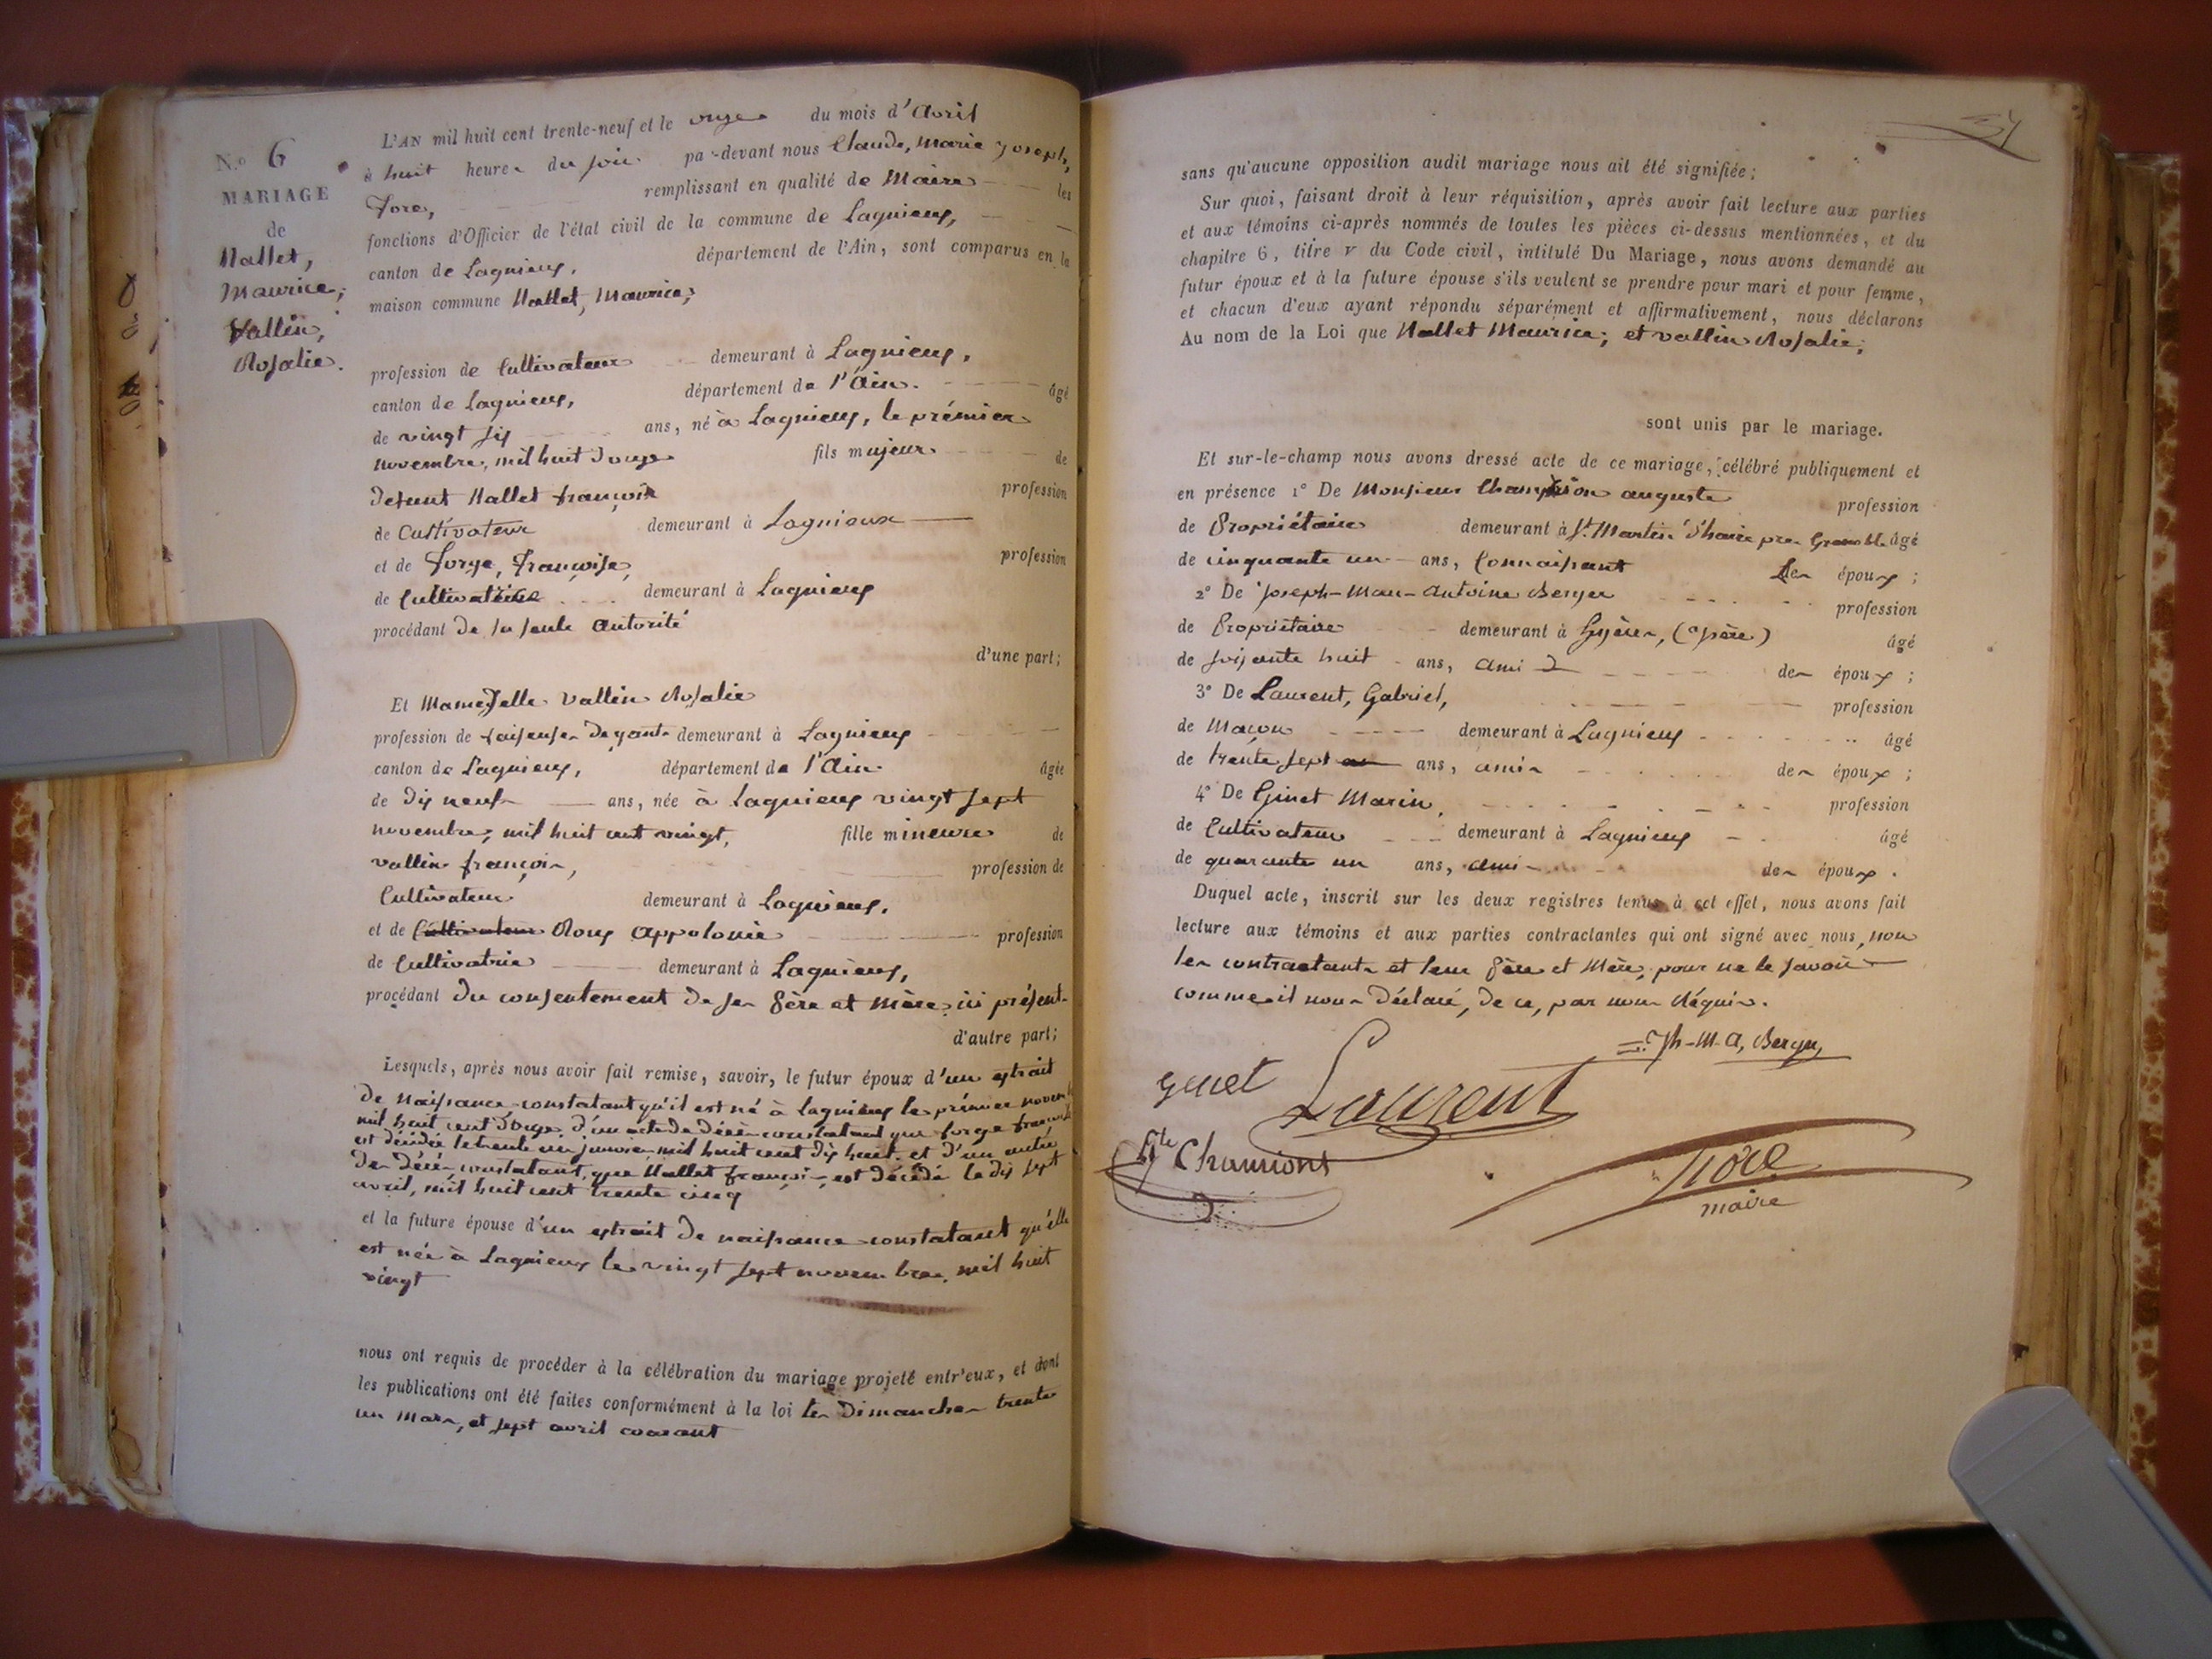 N.º 6
MARIAGE
de
Hallet,
Maurice;
Vallin,
Rosalie.
L'AN mil huit cent trente-neuf et le onze du mois d'avril
à huit heures du soir pa-devant nous Claude, Marie Joseph,
remplissant en qualité de Maire les
fonctions d'Officier de l'état civil de la commune de Lagnieux,
canton de Lagnieux, département de l'Ain, sont comparus en la
maison commune Hallet, Maurice;
profession de Cultivateur demeurant à Lagnieux,
canton de Lagnieux, département de l'Ain. âgé
de vingt six ans, né à Lagnieux, le prémier
novembre, mil huit douze fils majeur de
defunt Hallet françois profession
de Cultivateur demeurant à Lagnieux
et de Forge, Françoise, profession
de Cultivatrice demeurant à Lagnieux
procédant de sa seule autorité
d'une part;
Et Mameselle Vallin Rosalie
profession de faiseuse de gants demeurant à Lagnieux
canton de Lagnieux, département de l'Ain. âgée
de dix neuf ans, née à Lagnieux vingt sept
novembre, mil huit cent vingt, fille mineure de
vallin françois, profession de
Cultivateur demeurant à Lagnieux,
et de Cultivateur Roux Appolonie profession
de Cultivatrice demeurant à Lagnieux,
procédant du consentement de ses Père et Mère, ici présents
d'autre part;
Lesquels, après nous avoir fait remise, savoir, le futur époux d'un extrait
de naissance constatant qu'il est né à Lagnieux le prémier novemb
mil huit cent douze, d'un acte de décès constatant que forge françoise
est décédée le trente un janvier mil huit cent dix huit. et d'un autre
de décès, constatant, que Hallet françois, est décédé le dix sept
avril, mil huit cent trente cinq
et la future épouse d'un extrait de naissance constatant qu'elle
est née à Lagnieux le vingt sept novembre, mil huit
vingt
nous ont requis de procéder à la célébration du mariage projeté entr'eux, et dont
les publications ont été faites conformément à la loi les Dimanches trente
un Mars, et sept avril courant
sans qu'aucune opposition audit mariage nous ait été signifiée;
Sur quoi, faisant droit à leur réquisition, après avoir fait lecture aux parties
et aux témoins ci-après nommés de toutes les pièces ci-dessus mentionnées, et du
chapitre 6, titre V du Code civil, intitulé Du Mariage, nous avons demandé au
futur époux et à la future épouse s'ils veulent se prendre pour mari et pour femme,
et chacun d'eux ayant répondu séparément et affirmativement, nous déclarons
Au nom de la Loi que Hallet Maurice; et vallin Rosalie;
sont unis par le mariage.
Et sur-le-champ nous avons dressé acte de ce mariage, célébré publiquement et
en présence 1º De Monsieur auguste profession
de Propriétaire demeurant à St. Martin d'haire près Grenoble âgé
de cinquante un ans, Connaissant Les époux;
2º De Joseph-Marc-Antoine Berger profession
de Propriétaire demeurant à (Isère) âgé
de soixante huit ans, ami des époux;
3º De Laurent, Gabriel, profession
de Maçon demeurant à Lagnieux âgé
de trente sept ans, amis des époux;
4º De Ginet Marin, profession
de Cultivateur demeurant à Lagnieux âgé
de quarante un ans, ami des époux.
Duquel acte, inscrit sur les deux registres tenus à cet effet, nous avons fait
lecture aux témoins et aux parties contractantes qui ont signé avec nous, non
les contractants et leur Père et Mère, pour ne le savoir
comme il nous déclaré, de ce, par nous Réquis.
Jh-M-A, Berger,
Laurent
maire